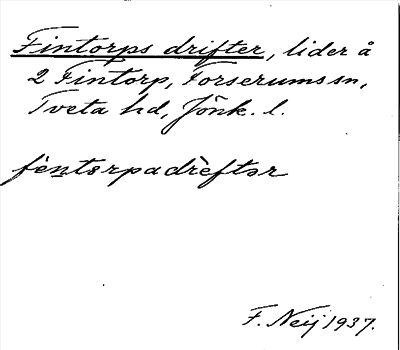 Fintorps drifter, lider å
2 Fintorp, Forserums sn,
Tveta hd, Jönk. l.
fèntərpadrèftər
F. Neij 1937.